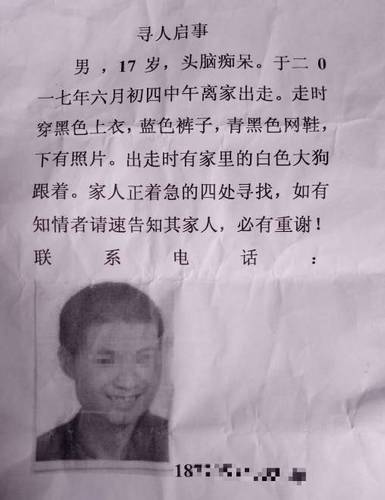 寻人启事
男，17岁，头脑痴呆。于二0
一七年六月初四中午离家出走。走时
穿黑色上衣，蓝色裤子，青黑色网鞋，
下有照片。出走时有家里的白色大狗
跟着。家人正着急的四处寻找，如有
知情者请速告知其家人，必有重谢！
联系电话：
18